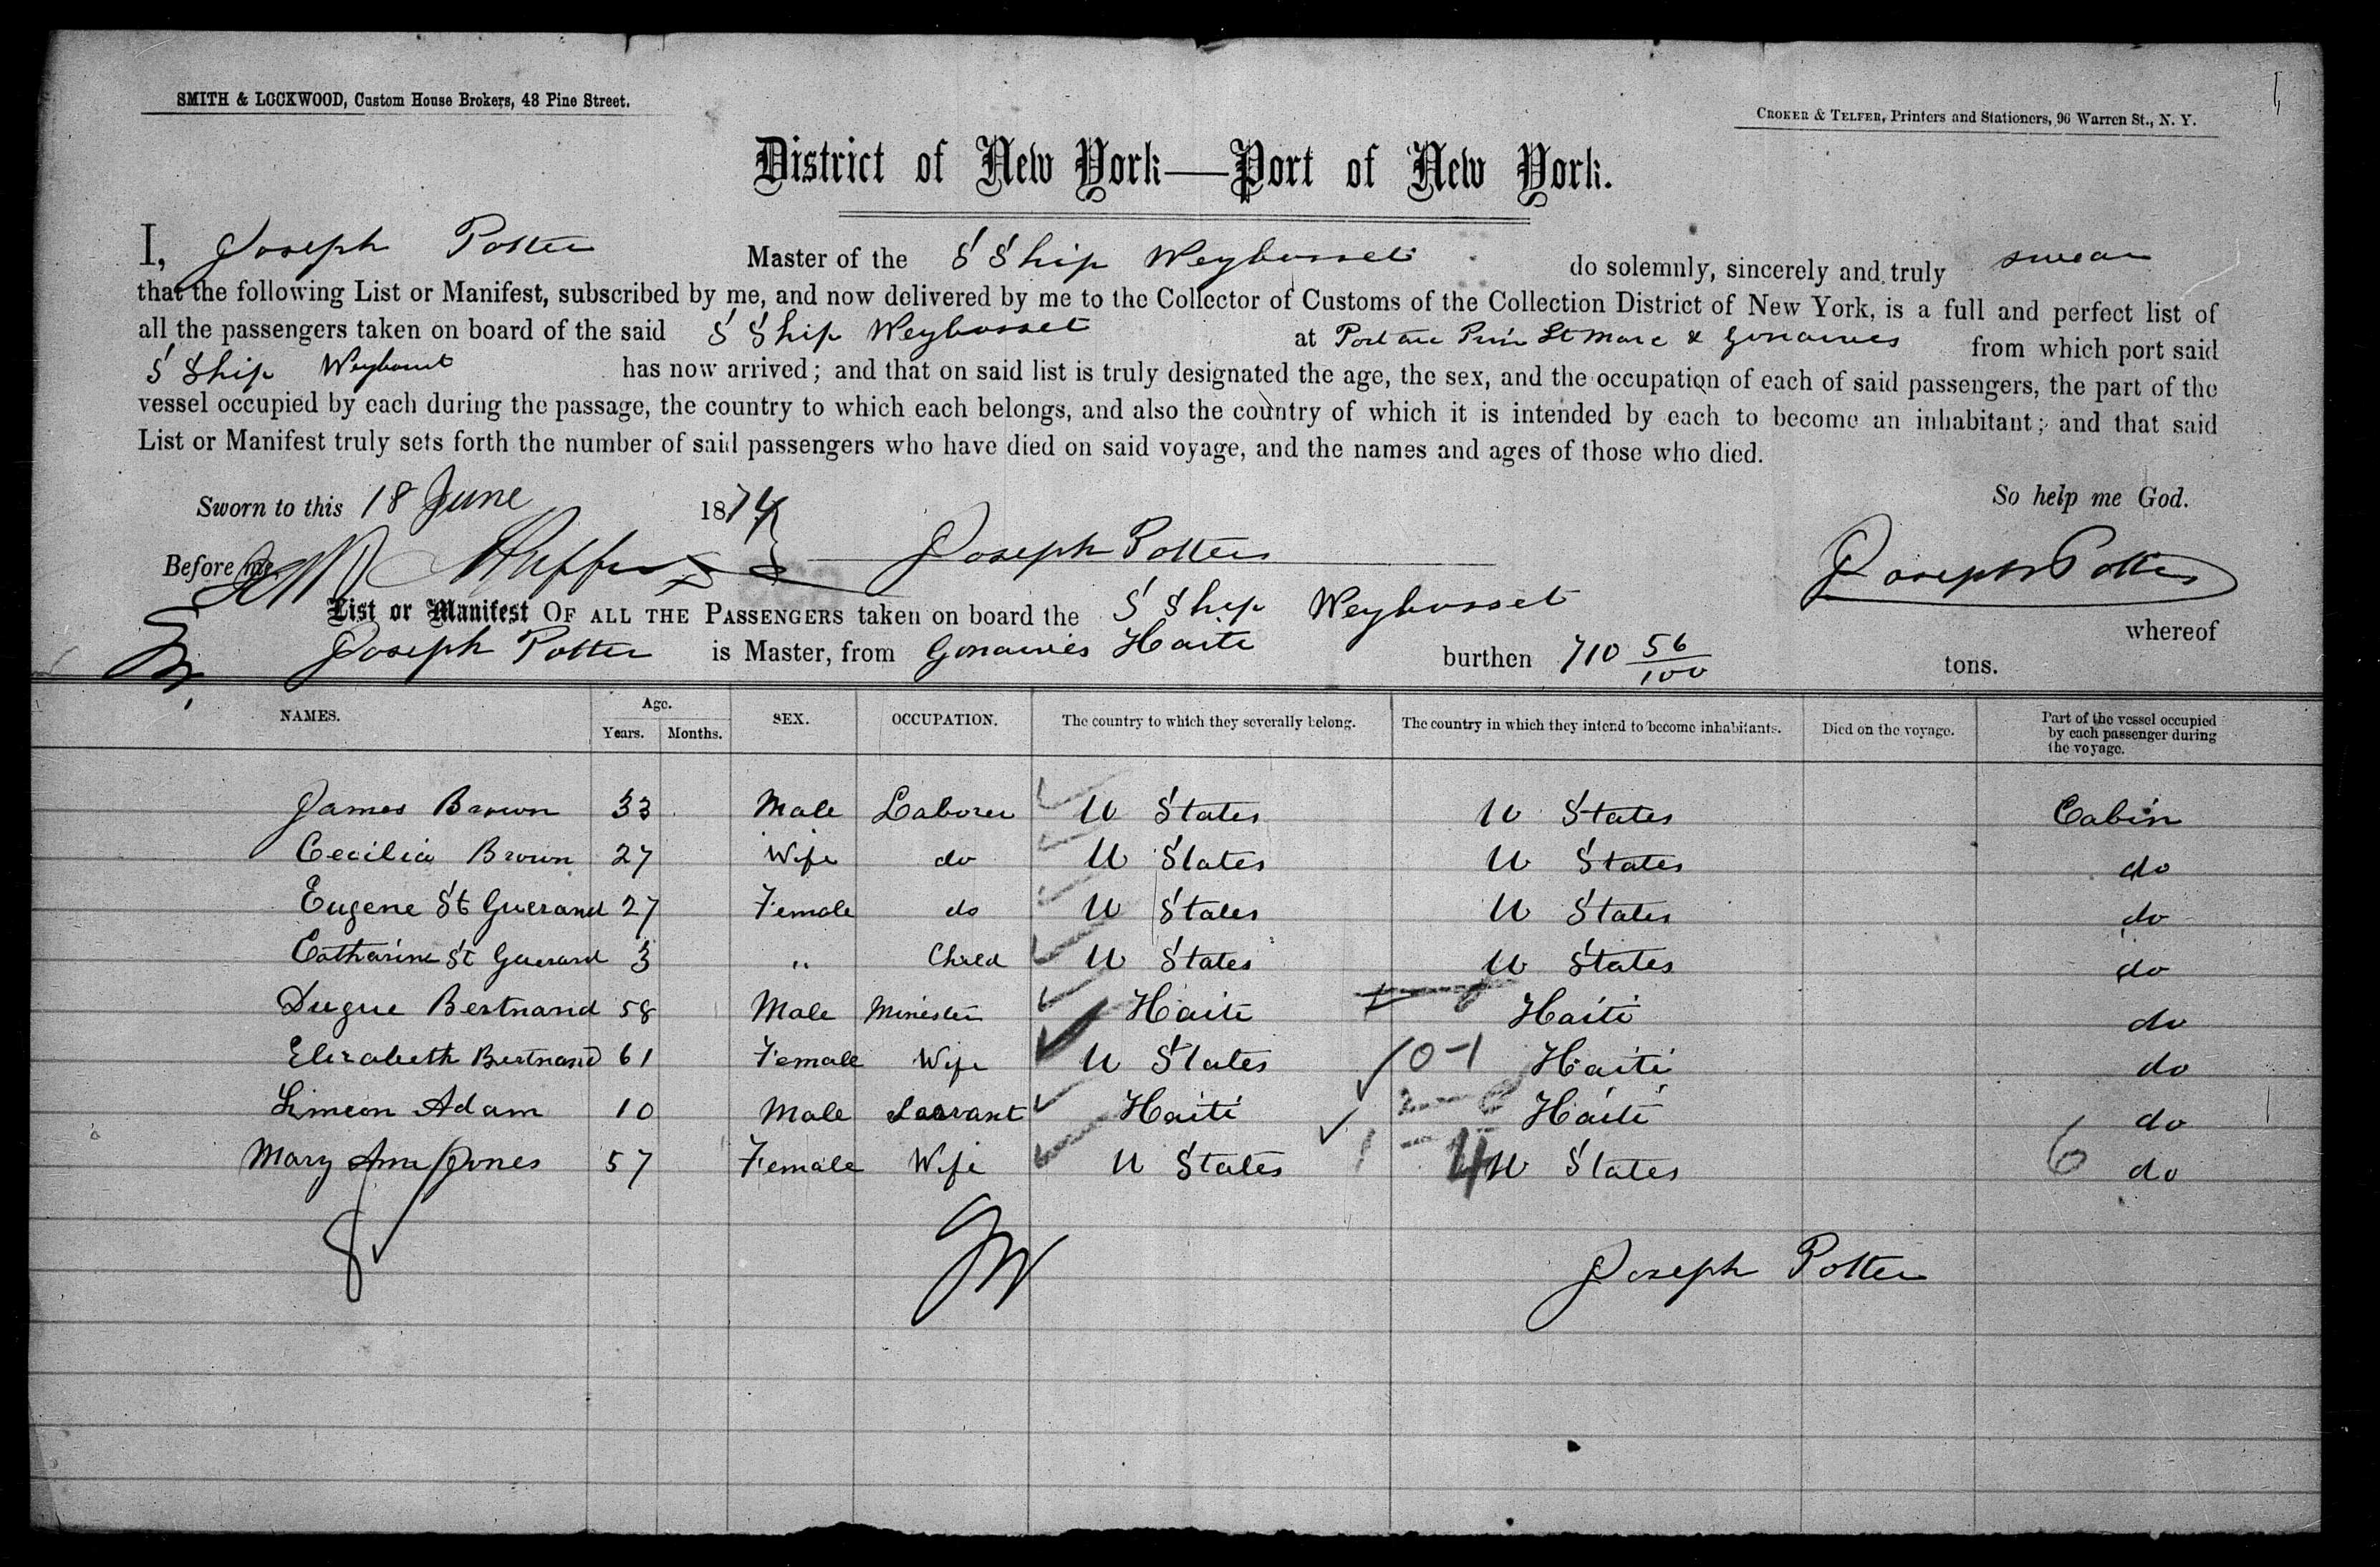 SMITH & LOCKWOOD, Custom House Brokers, 48 Pine Street.
CROKER & TELFER, Printers and Stationers, 96 Warren St., N. Y.
District of New York—Port of New York.
I, Joseph Potter Master of the S Ship Weybosset do solemnly, sincerely and truly swear
that the following List or Manifest, subscribed by me, and now delivered by me to the Collector of Customs of the Collection District of New York, is a full and perfect list of
all the passengers taken on board of the said S Ship Weybosset at Port au Prin St Marc & Gonaives from which port said
S Ship Weybosset has now arrived; and that on said list is truly designated the age, the sex, and the occupation of each of said passengers, the part of the
vessel occupied by each during the passage, the country to which each belongs, and also the country of which it is intended by each to become an inhabitant; and that said
List or Manifest truly sets forth the number of said passengers who have died on said voyage, and the names and ages of those who died.
Sworn to this 18 June 1874 So help me God.
Before me, Joseph Potter Joseph Potter
List or Manifest OF ALL THE PASSENGERS taken on board the S Ship Weybosset whereof
Joseph Potter is Master, from Gonaives Haiti burthen 710 56/100 tons.
NAMES. Age. Years. Months. SEX. OCCUPATION. The country to which they severally belong. The country in which they intend to become inhabitants. Died on the voyage. Part of the vessel occupied by each passenger during the voyage.
James Brown 33 Male Laborer U States U States Cabin
Cecilia Brown 27 Wife do U States U States do
Eugene St Guerand 27 Female do U States U States do
Catharine St Guerard 3 " Child U States U States do
Dugue Bertnand 58 Male Minister Haiti Haiti do
Elizabeth Bertnand 61 Female Wife U States 10-1 Haiti do
Simeon Adam 10 Male Searvant Haiti Haiti do
Mary Ann Jones 57 Female Wife U States 1 4 U States 6 do
8
Joseph Potter